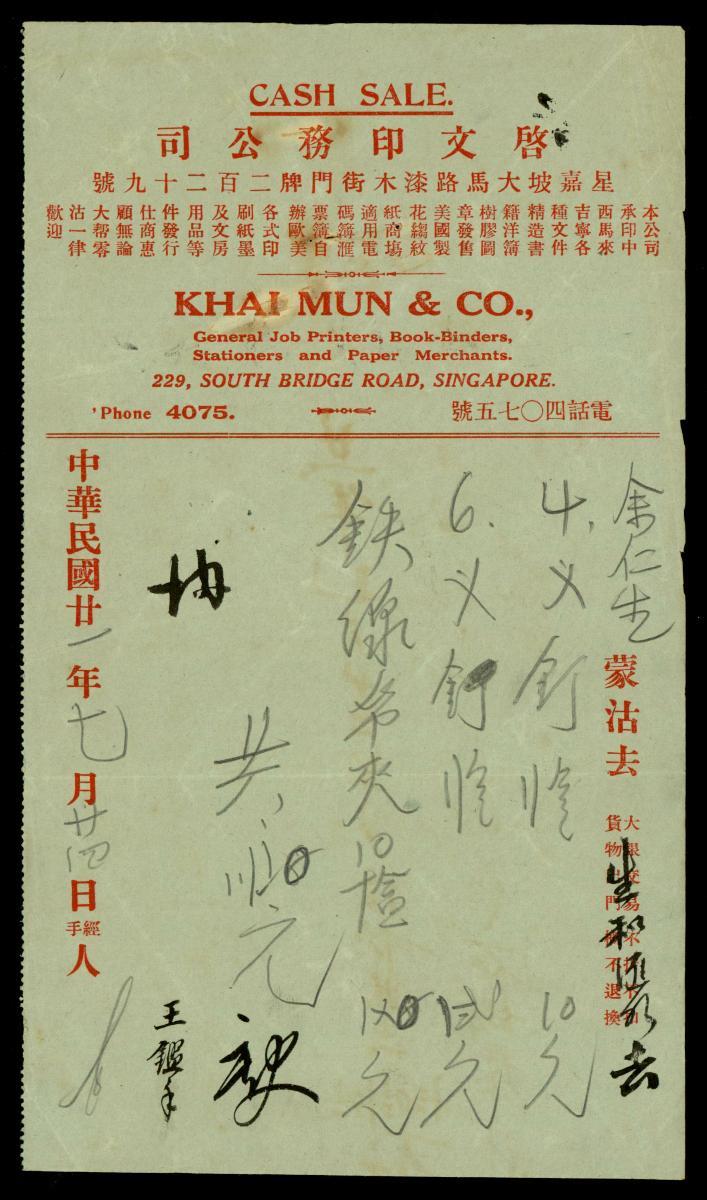 CASH SALE.
司公務印文啓
號九十二百二牌門街木漆路馬大坡嘉星
本公司
承印中
西馬來
吉寧各
種文件
精造書
籍洋簿
樹膠圖
章發售
美國製
花縐紋
紙商塲
適用電
碼簿滙
票簿自
辦歐美
各式印
刷紙墨
及文房
用品等
件發行
仕商惠
顧無論
大帮零
沽一律
歡迎
KHAI MUN & CO.,
General Job Printers, Book-Binders,
Stationers and Paper Merchants.
229, SOUTH BRIDGE ROAD, SINGAPORE.
'Phone 4075.
號五七〇四話電
余仁生 蒙沽去
貨物出門 不退換
生和 去
4. 釘 10元
6. 釘 元
鉄線 夾 10 元
共 元
王鑑
中華民國廿一年七月廿四日經手人